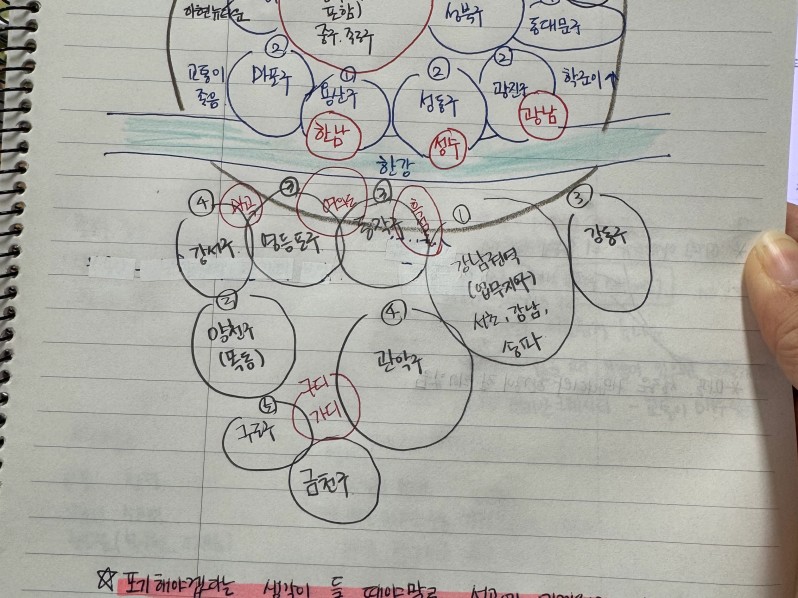 아현뉴타운
포함)
중구.종로구
성북구
동대문구
②
①
②
②
교통이
좋음
마포구
용산구
성동구
광진구
학군이↑
한남
성수
광남
한강
④
③
③
①
③
마곡
여의도
흑석
강서구
영등포구
동작구
강남권역
(업무지역)
서초, 강남,
송파
강동구
②
양천구
(목동)
④
관악구
구디
가디
⑤
구로구
금천구
☆ 포기해야겠다는 생각이 들 때야말로